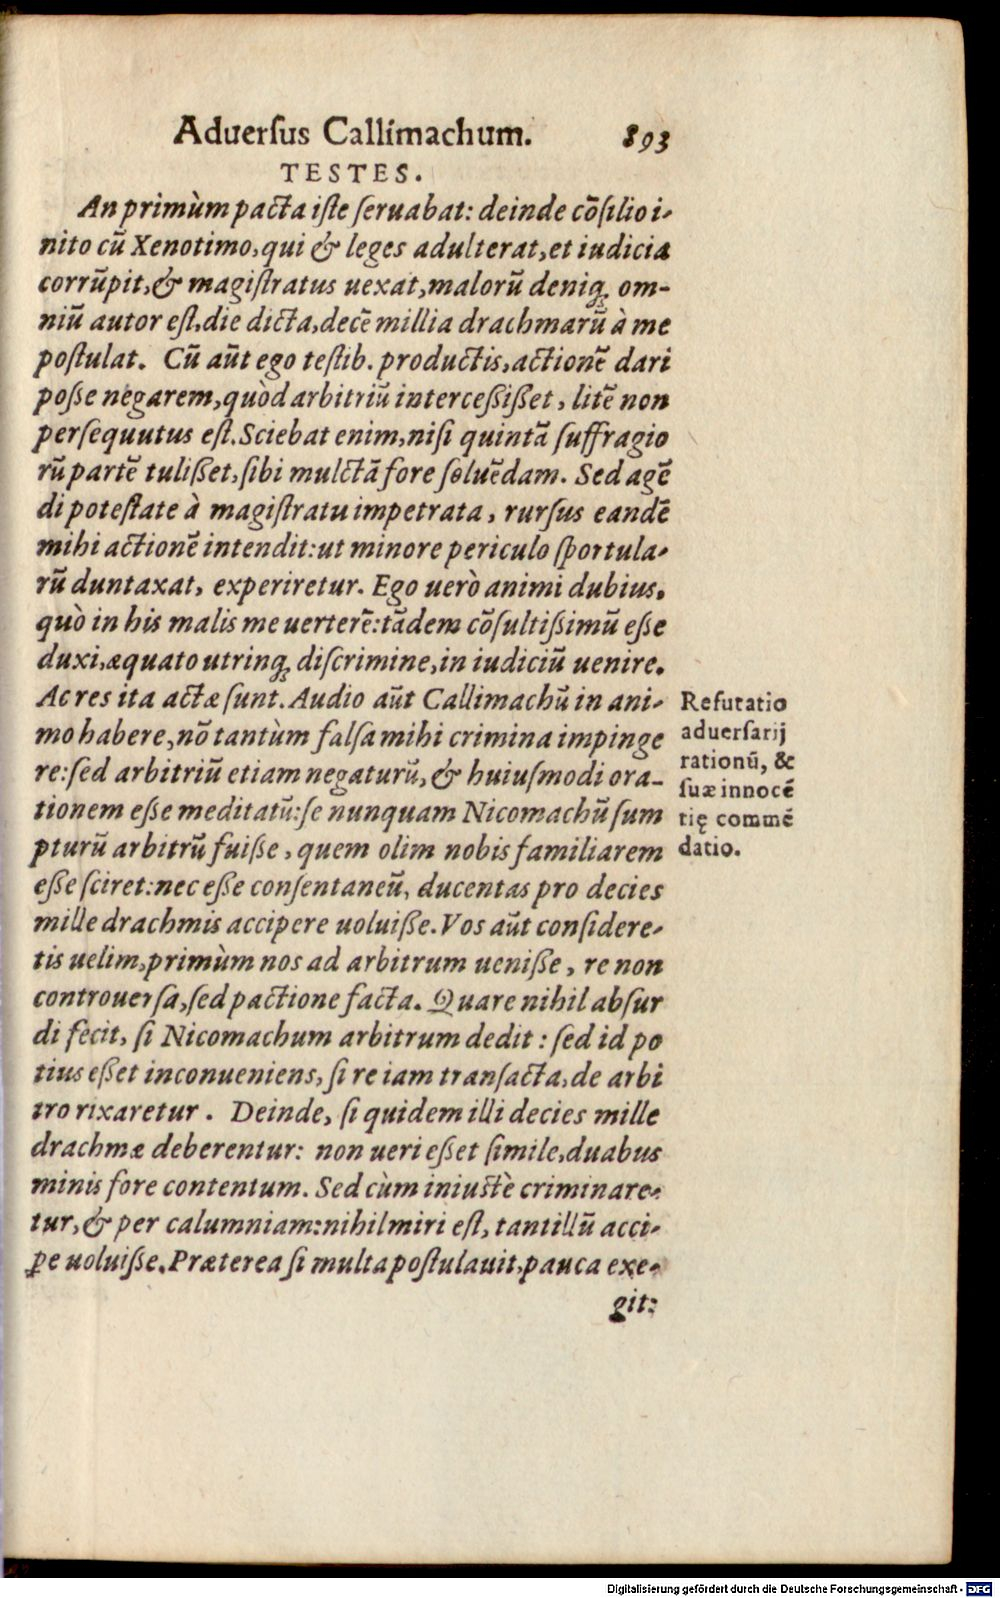 Aduersus Callimachum. 893
TESTES.
An primùm pacta iste seruabat: deinde cõsilio i-
nito cũ Xenotimo, qui & leges adulterat, et iudicia
corrũpit, & magistratus uexat, malorũ deniq; om-
niũ autor est, die dicta, decẽ millia drachmarũ à me
postulat. Cũ aũt ego testib. productis, actionẽ dari
posse negarem, quòd arbitriũ intercessisset, litẽ non
persequutus est. Sciebat enim, nisi quintã suffragio
rũ partẽ tulisset, sibi mulctã fore soluẽdam. Sed agẽ
di potestate à magistratu impetrata, rursus eandẽ
mihi actionẽ intendit: ut minore periculo sportula-
rũ duntaxat, experiretur. Ego uerò animi dubius,
quò in his malis me uerterẽ: tãdem cõsultissimũ esse
duxi, æquato utrinq; discrimine, in iudiciũ uenire.
Ac res ita actæ sunt. Audio aũt Callimachũ in ani-
mo habere, nõ tantùm falsa mihi crimina impinge
re: sed arbitriũ etiam negaturũ, & huiusmodi ora-
tionem esse meditatũ: se nunquam Nicomachũ sum
pturũ arbitrũ fuisse, quem olim nobis familiarem
esse sciret: nec esse consentaneũ, ducentas pro decies
mille drachmis accipere uoluisse. Vos aũt considere-
tis uelim, primùm nos ad arbitrum uenisse, re non
controuersa, sed pactione facta. Quare nihil absur
di fecit, si Nicomachum arbitrum dedit: sed id po
tius esset inconueniens, si re iam transacta, de arbi
tro rixaretur. Deinde, si quidem illi decies mille
drachmæ deberentur: non ueri esset simile, duabus
minis fore contentum. Sed cùm iniustè criminare-
tur, & per calumniam: nihil miri est, tantillũ acci-
ꝑe uoluisse. Præterea si multa postulauit, pauca exe-
git:
Refutatio
aduersarij
rationũ, &
suæ innocẽ
tię commẽ
datio.
Digitalisierung gefördert durch die Deutsche Forschungsgemeinschaft - DFG